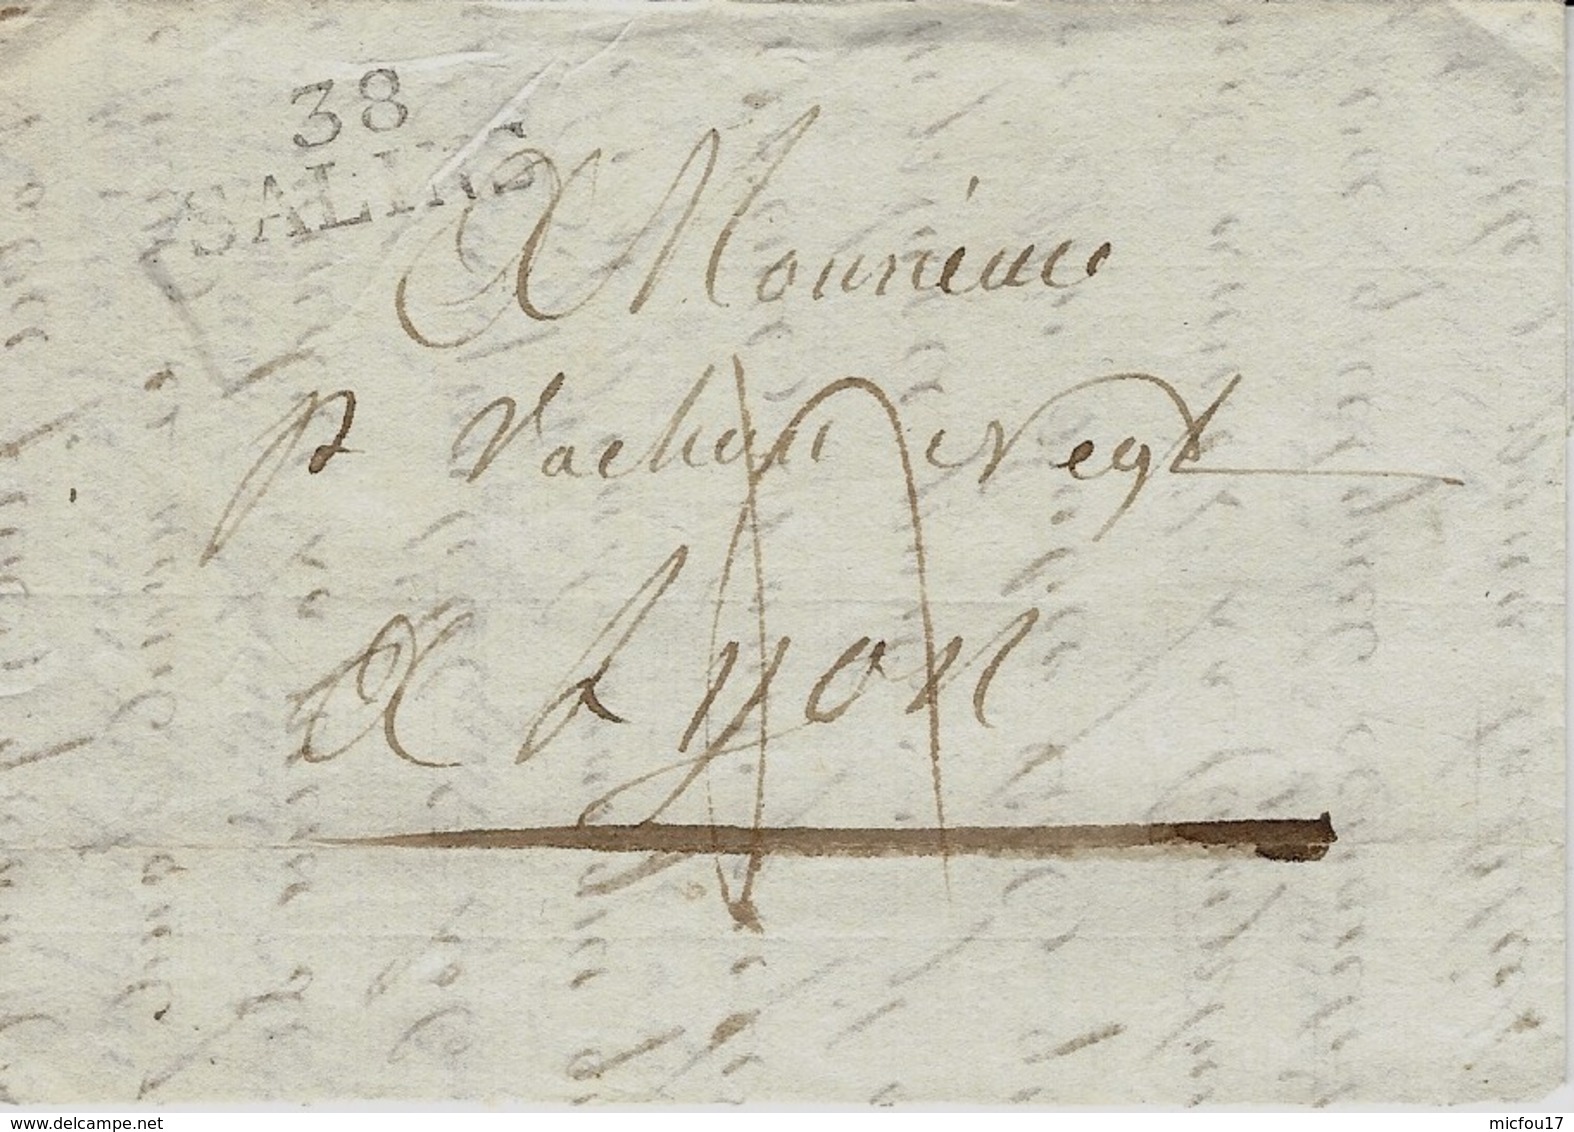 38
SALINS
A Monsieur
p Vachon Negt
A Lyon
www.delcampe.net
micfou17